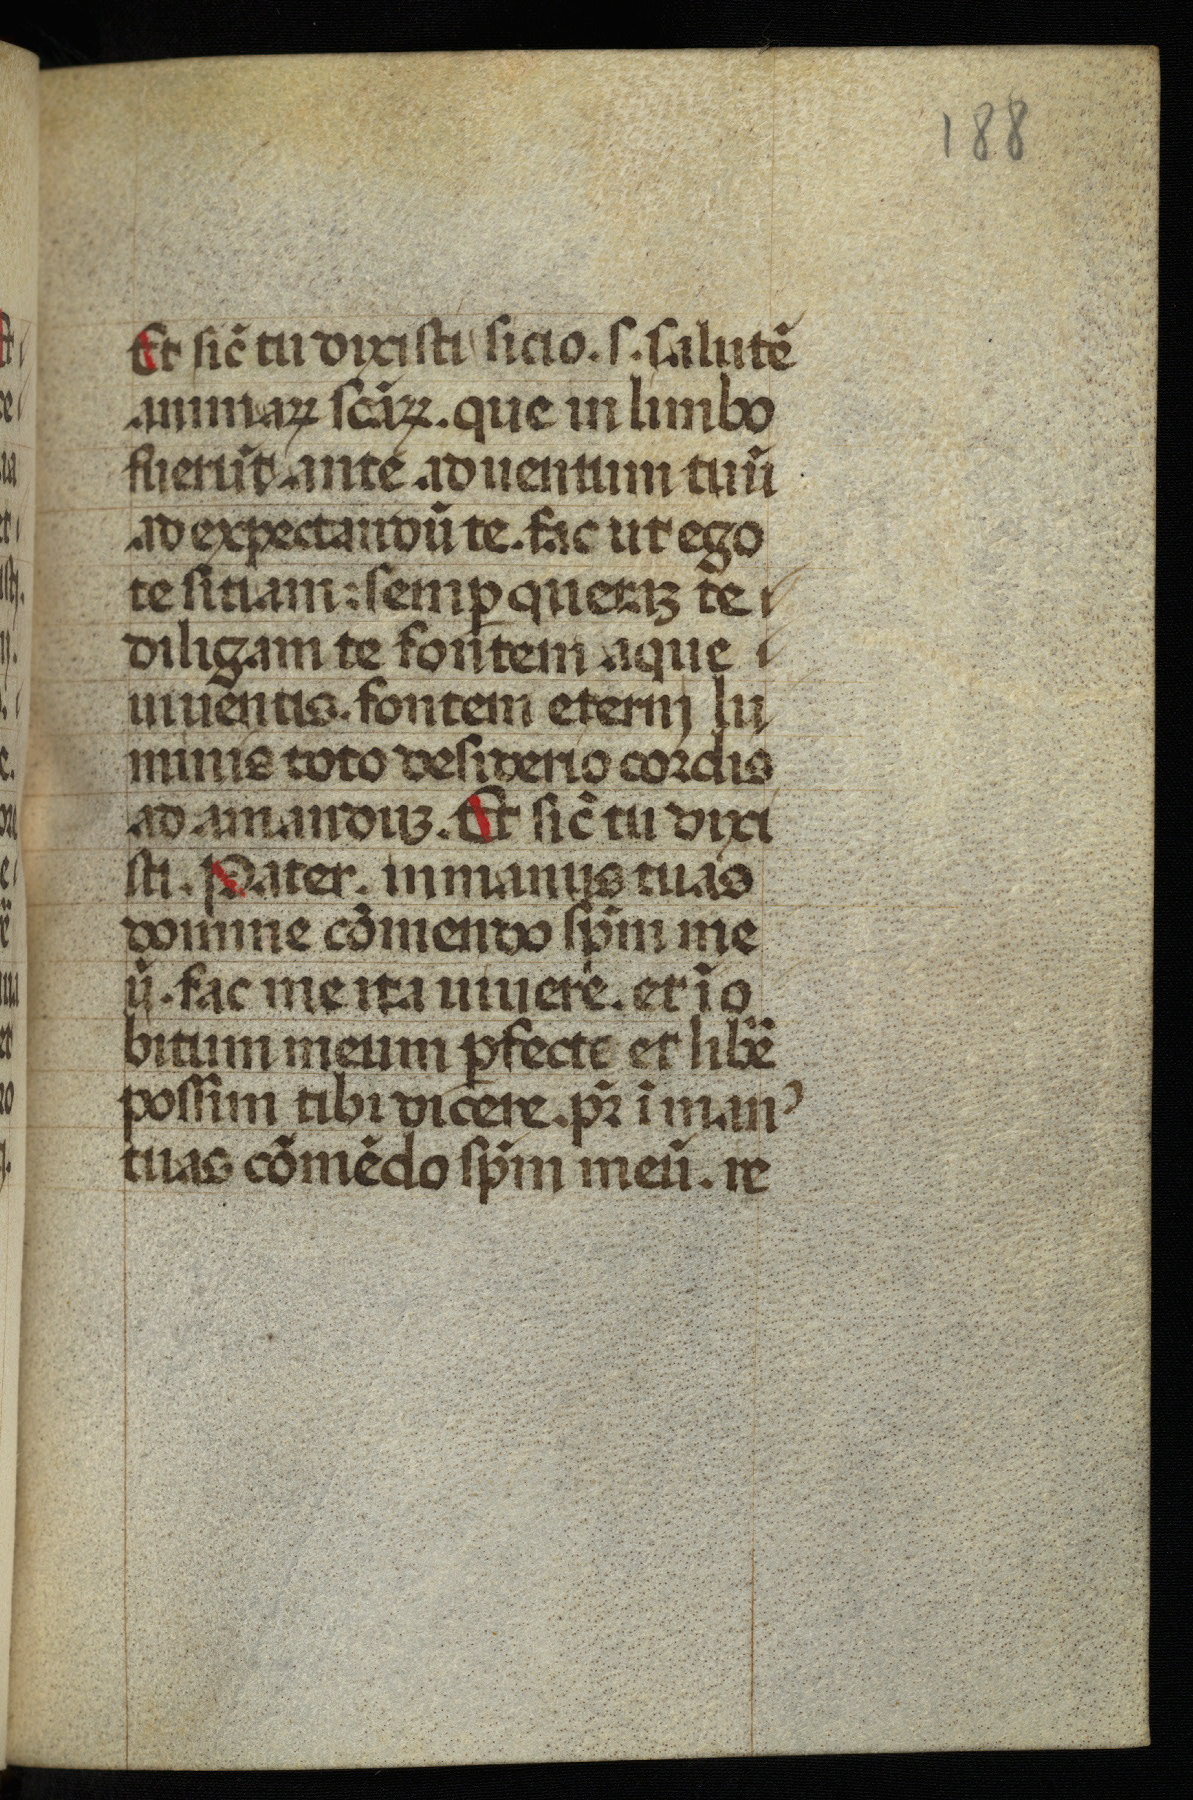 188
Et sic̄ tu dixisti sicio. s. salutē
animaꝝ scāꝝ. que in limbo
fuerūt ante aduentum tuū
ad expectandū te. fac ut ego
te sitiam: semꝑ queraꝫ te
diligam te fontem aque
uiuentis. fontem eternj lu
minis toto desiderio cordis
ad amanduꝫ. Et sic̄ tu dixi
sti. Pater. in manus tuas
domine cōmendo sp̄m me
ū. fac me ita uiuere. et ī o
bitum meum ꝑfecte et libē
possim tibi dicere. pr̄ ī manꝰ
tuas cōmēdo sp̄m meū. re